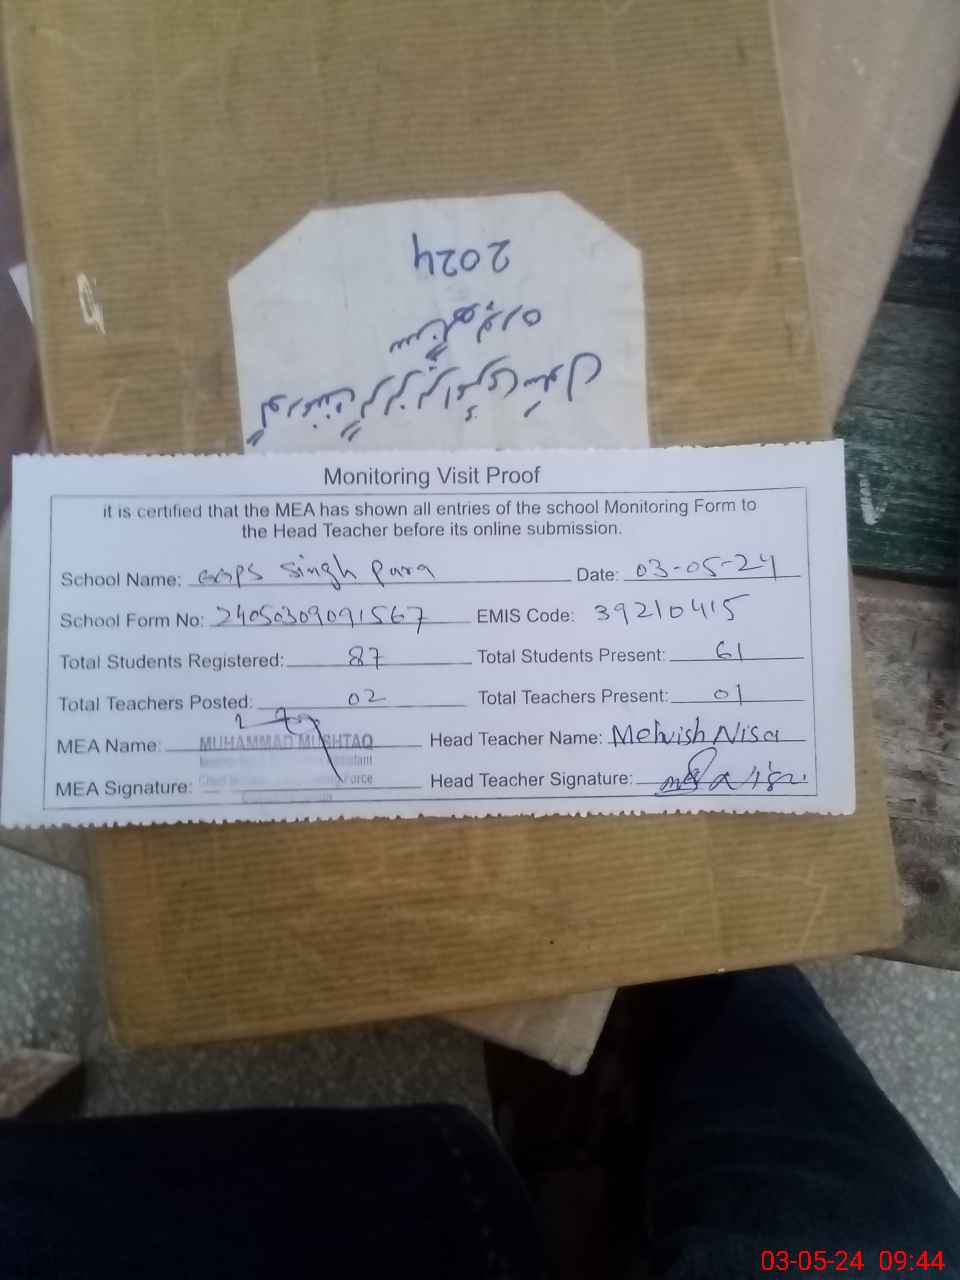 2024
سنگھ پورہ
گورنمنٹ گرلز پرائمری سکول
Monitoring Visit Proof
it is certified that the MEA has shown all entries of the school Monitoring Form to
the Head Teacher before its online submission.
School Name: GGPS Singh Pura Date: 03-05-24
School Form No: 24050309091567 EMIS Code: 39210415
Total Students Registered: 87 Total Students Present: 61
Total Teachers Posted: 02 Total Teachers Present: 01
MEA Name: MUHAMMAD MUSHTAQ Head Teacher Name: Mehvish Nisa
MEA Signature: Force Head Teacher Signature:
03-05-24 09:44